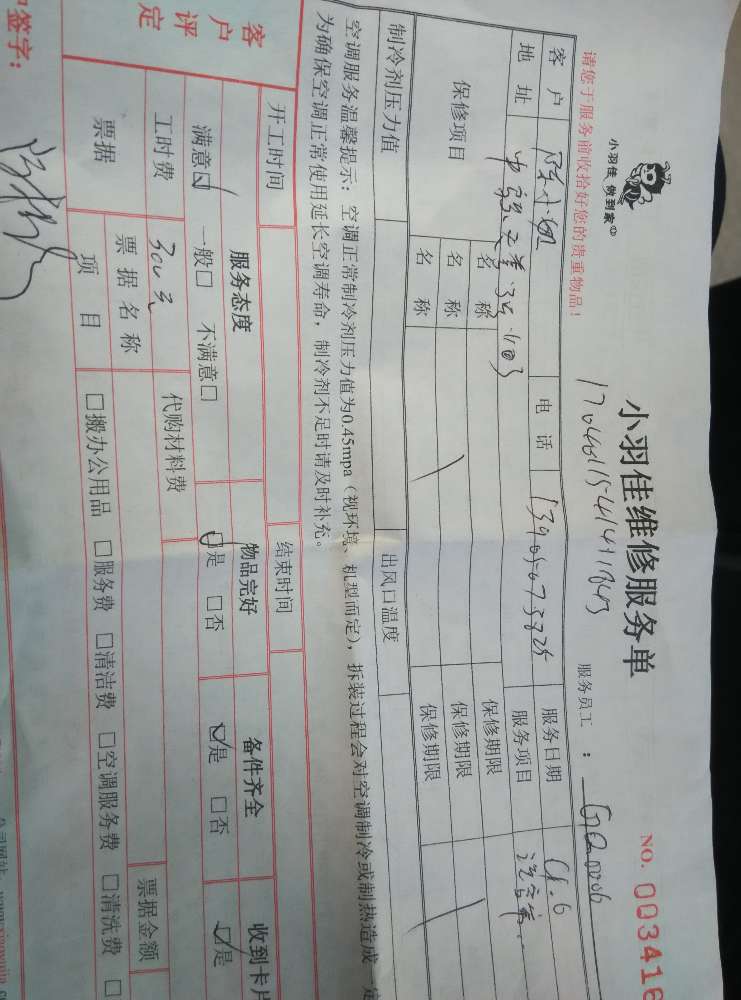 小羽佳 做到家
小羽佳维修服务单
NO. 003416
请您于服务前收拾好您的贵重物品！
服务员工 ：
客 户 陈小姐 电 话 服务日期
地 址 服务项目
保修项目 名 称 保修期限
名 称 保修期限
名 称 保修期限
制冷剂压力值 出风口温度
空调服务温馨提示：空调正常制冷剂压力值为0.45mpa（视环境、机型而定），拆装过程会对空调制冷或制热造成一定
为确保空调正常使用延长空调寿命，制冷剂不足时请及时补充。
开工时间 结束时间
客户评定 服务态度 物品完好 备件齐全 收到卡片
满意☑ 一般□ 不满意□ ☑是 □否 ☑是 □否 ☑是
工时费 300元 代购材料费
票据 票据名称 票据金额
项 目 □搬办公用品 □服务费 □清洁费 □空调服务费 □清洗费 □
签字：
公司网站：